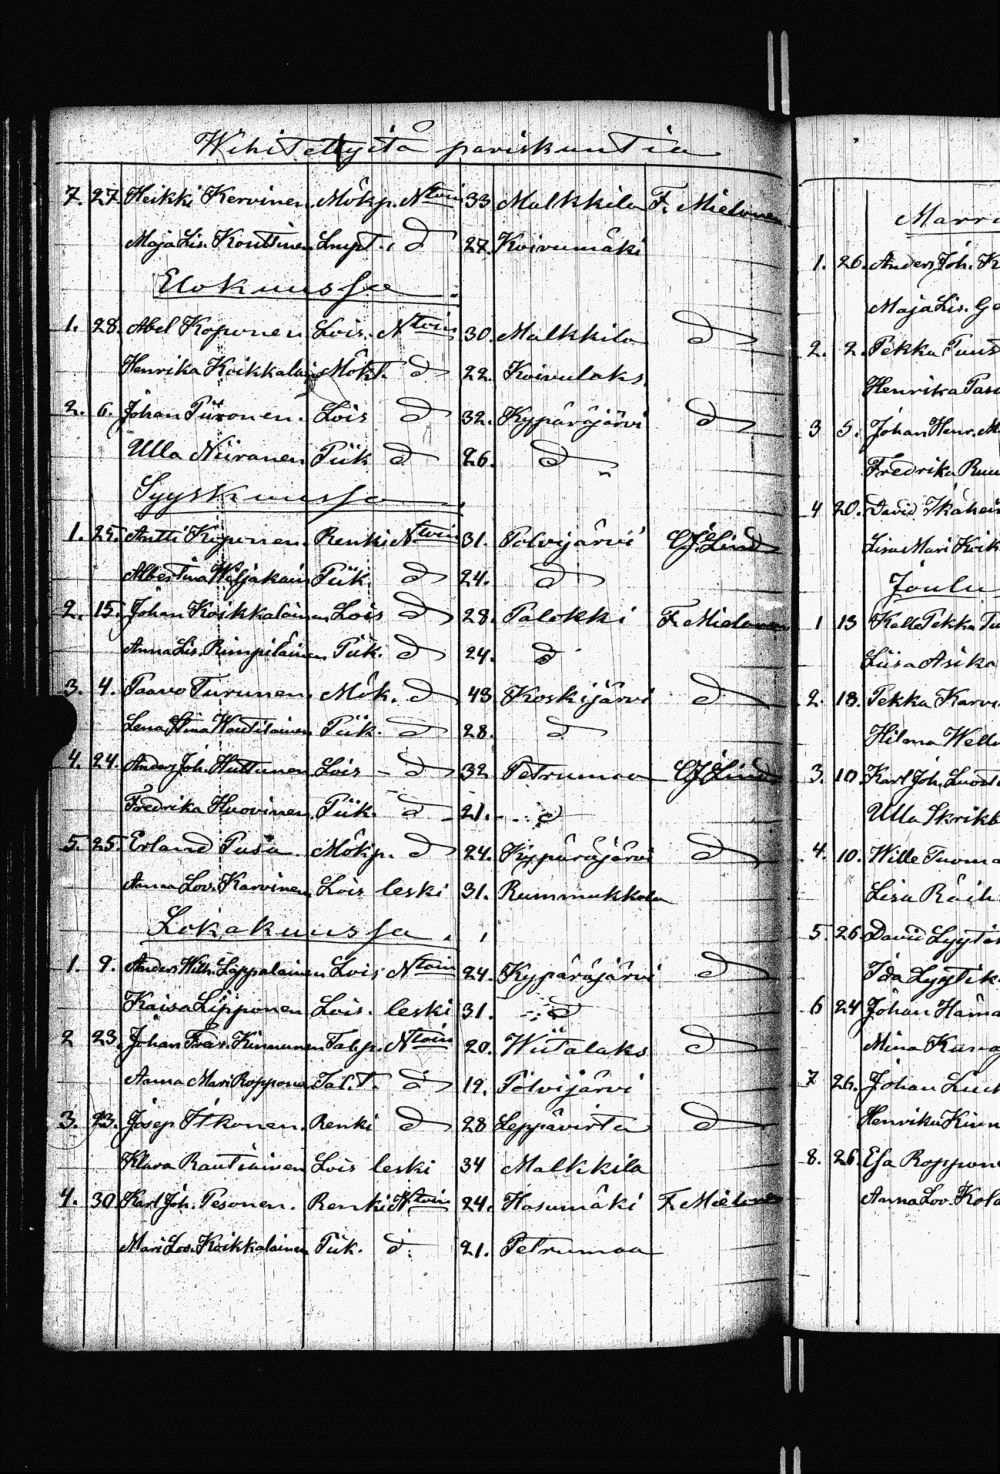 Wihitettyitä pariskuntia
7. 27. Heikki Kervinen. Mökp. Ntoin 33 Malkkila F. Mielonen
Maja Lis. Kontinen Lmpt. d 27. Koivumäki
Elokuussa
1. 28. Abel Koponen Lois. Ntoin 30. Malkkila d
Henrika Koikkalain Mökt. d 22. Koivulaks
2. 6. Johan Piironen. Lois d 32. Kypäräjärvi d
Ulla Niiranen Piik d 26. d
Syyskuussa
1. 25. Antti Koponen. Renki Ntoin 31. Polvijärvi CJ Lind
Albertina Wäljakain Piik. d 24. d
2. 15. Johan Koikkalainen Lois d 28. Palokki F. Mielonen
Anna Lis. Rimpiläinen Piik. d 24. d
3. 4. Paavo Turunen. Mök. d 43. Koskijärvi d
Lena Stina Woutilainen Piik. d 28. d
4. 24. Anders Joh. Huttunen Lois - d 32 Petrumaa CJ Lind
Fredrika Huovinen. Piik. d 21. d
5. 25. Erland Pasa Mökp. d 24. Kypäräjärvi d
Anna Lov. Karvinen Lois leski 31. Rummukkala
Lokakuussa.
1. 9. Anders Wilh. Lappalainen Lois Ntoin 24. Kypäräjärvi d
Kaisa Lipponen Lois. leski 31. d
2 23. Johan Fredr. Kinnunen Talp. Ntoin 20. Wiitalaks d
Anna Mari Ropponen Tal.t. d 19. Polvijärvi
3. 23. Josep Itkonen. Renki d 28 Leppävirta d
Klara Rautiainen Lois leski 34 Malkkila
4. 30. Karl Joh. Pesonen. Renki Ntoin 24. Hasumäki F. Mielonen
Mari Lov. Koikkalainen Piik. d. 21. Petrumaa
Marra
1. 26. Anders Joh. K
Maja Lis. Ge
2. 2. Pekka Tuus
Henrika Pase
3 5. Johan Henr. M
Fredrika Ruu
4 20. David Ikähei
Lisa Mari Koik
Joulu
1 13 Kalle Pekka Tu
Liisa Asika
2. 18. Pekka Karvi
Hilma Well
3. 10. Karl Joh. Luost
Ulla Skrikb
4. 10. Wille Tuoma
Lisa Räih
5 26 David Lyytik
Ida Lyytik
6 24 Johan Häma
Mina Kang
7 26. Johan Luck
Henrika Kinn
8. 26. Esa Roppon
Anna Lov. Kola